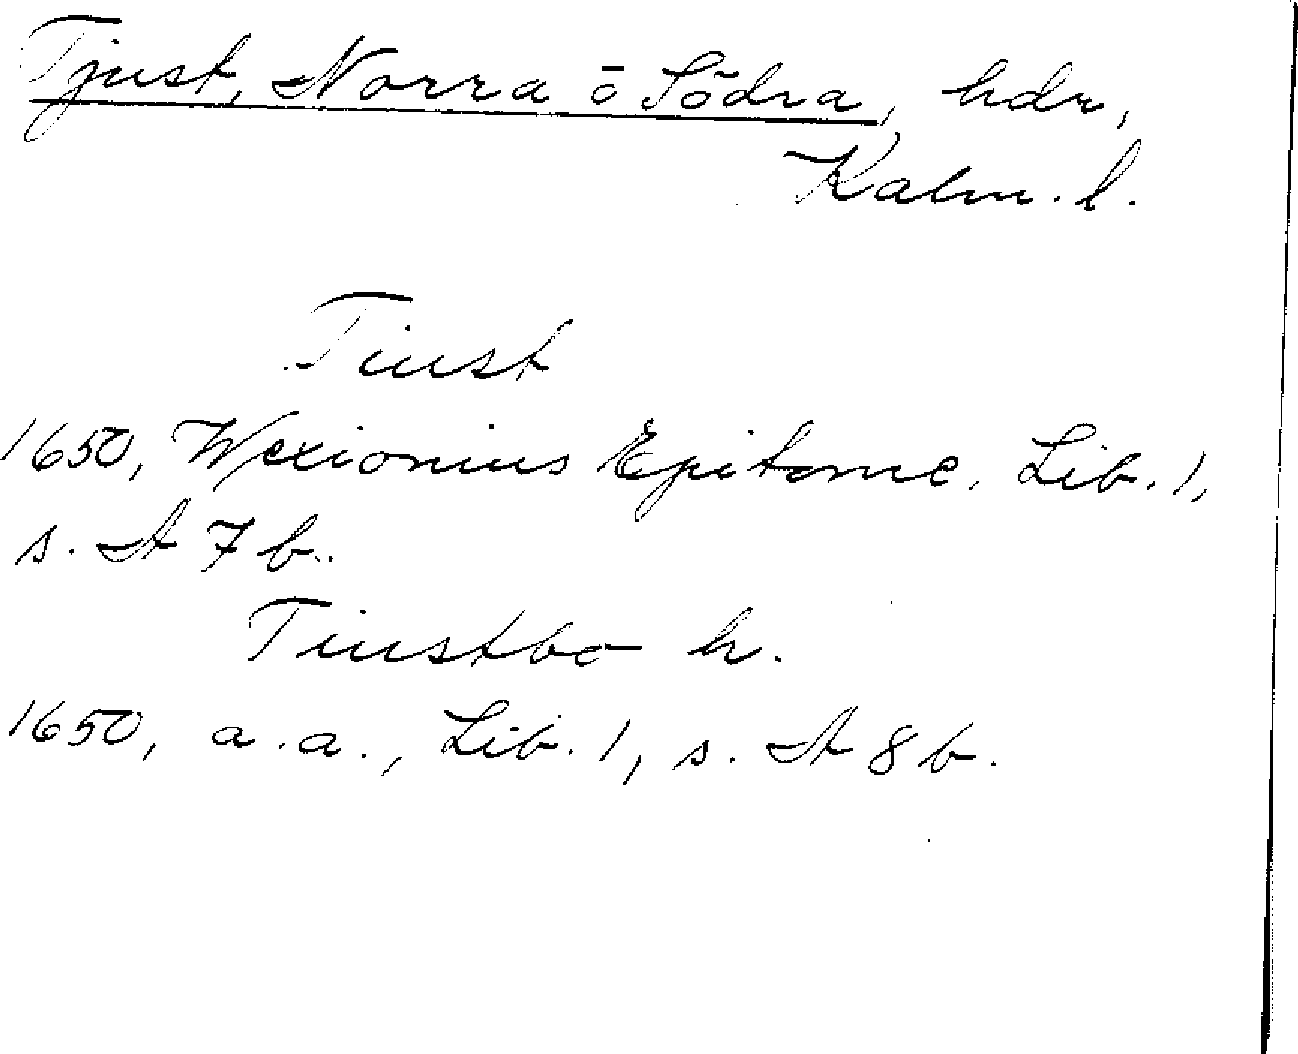 Tjust, Norra o Södra, hdr,
Kalm. l.
Tiust
1650, Wexionius Epitome. Lib. 1,
s. A 7 b.
Tiustbo h.
1650, a.a., Lib. 1, s. A 8 b.